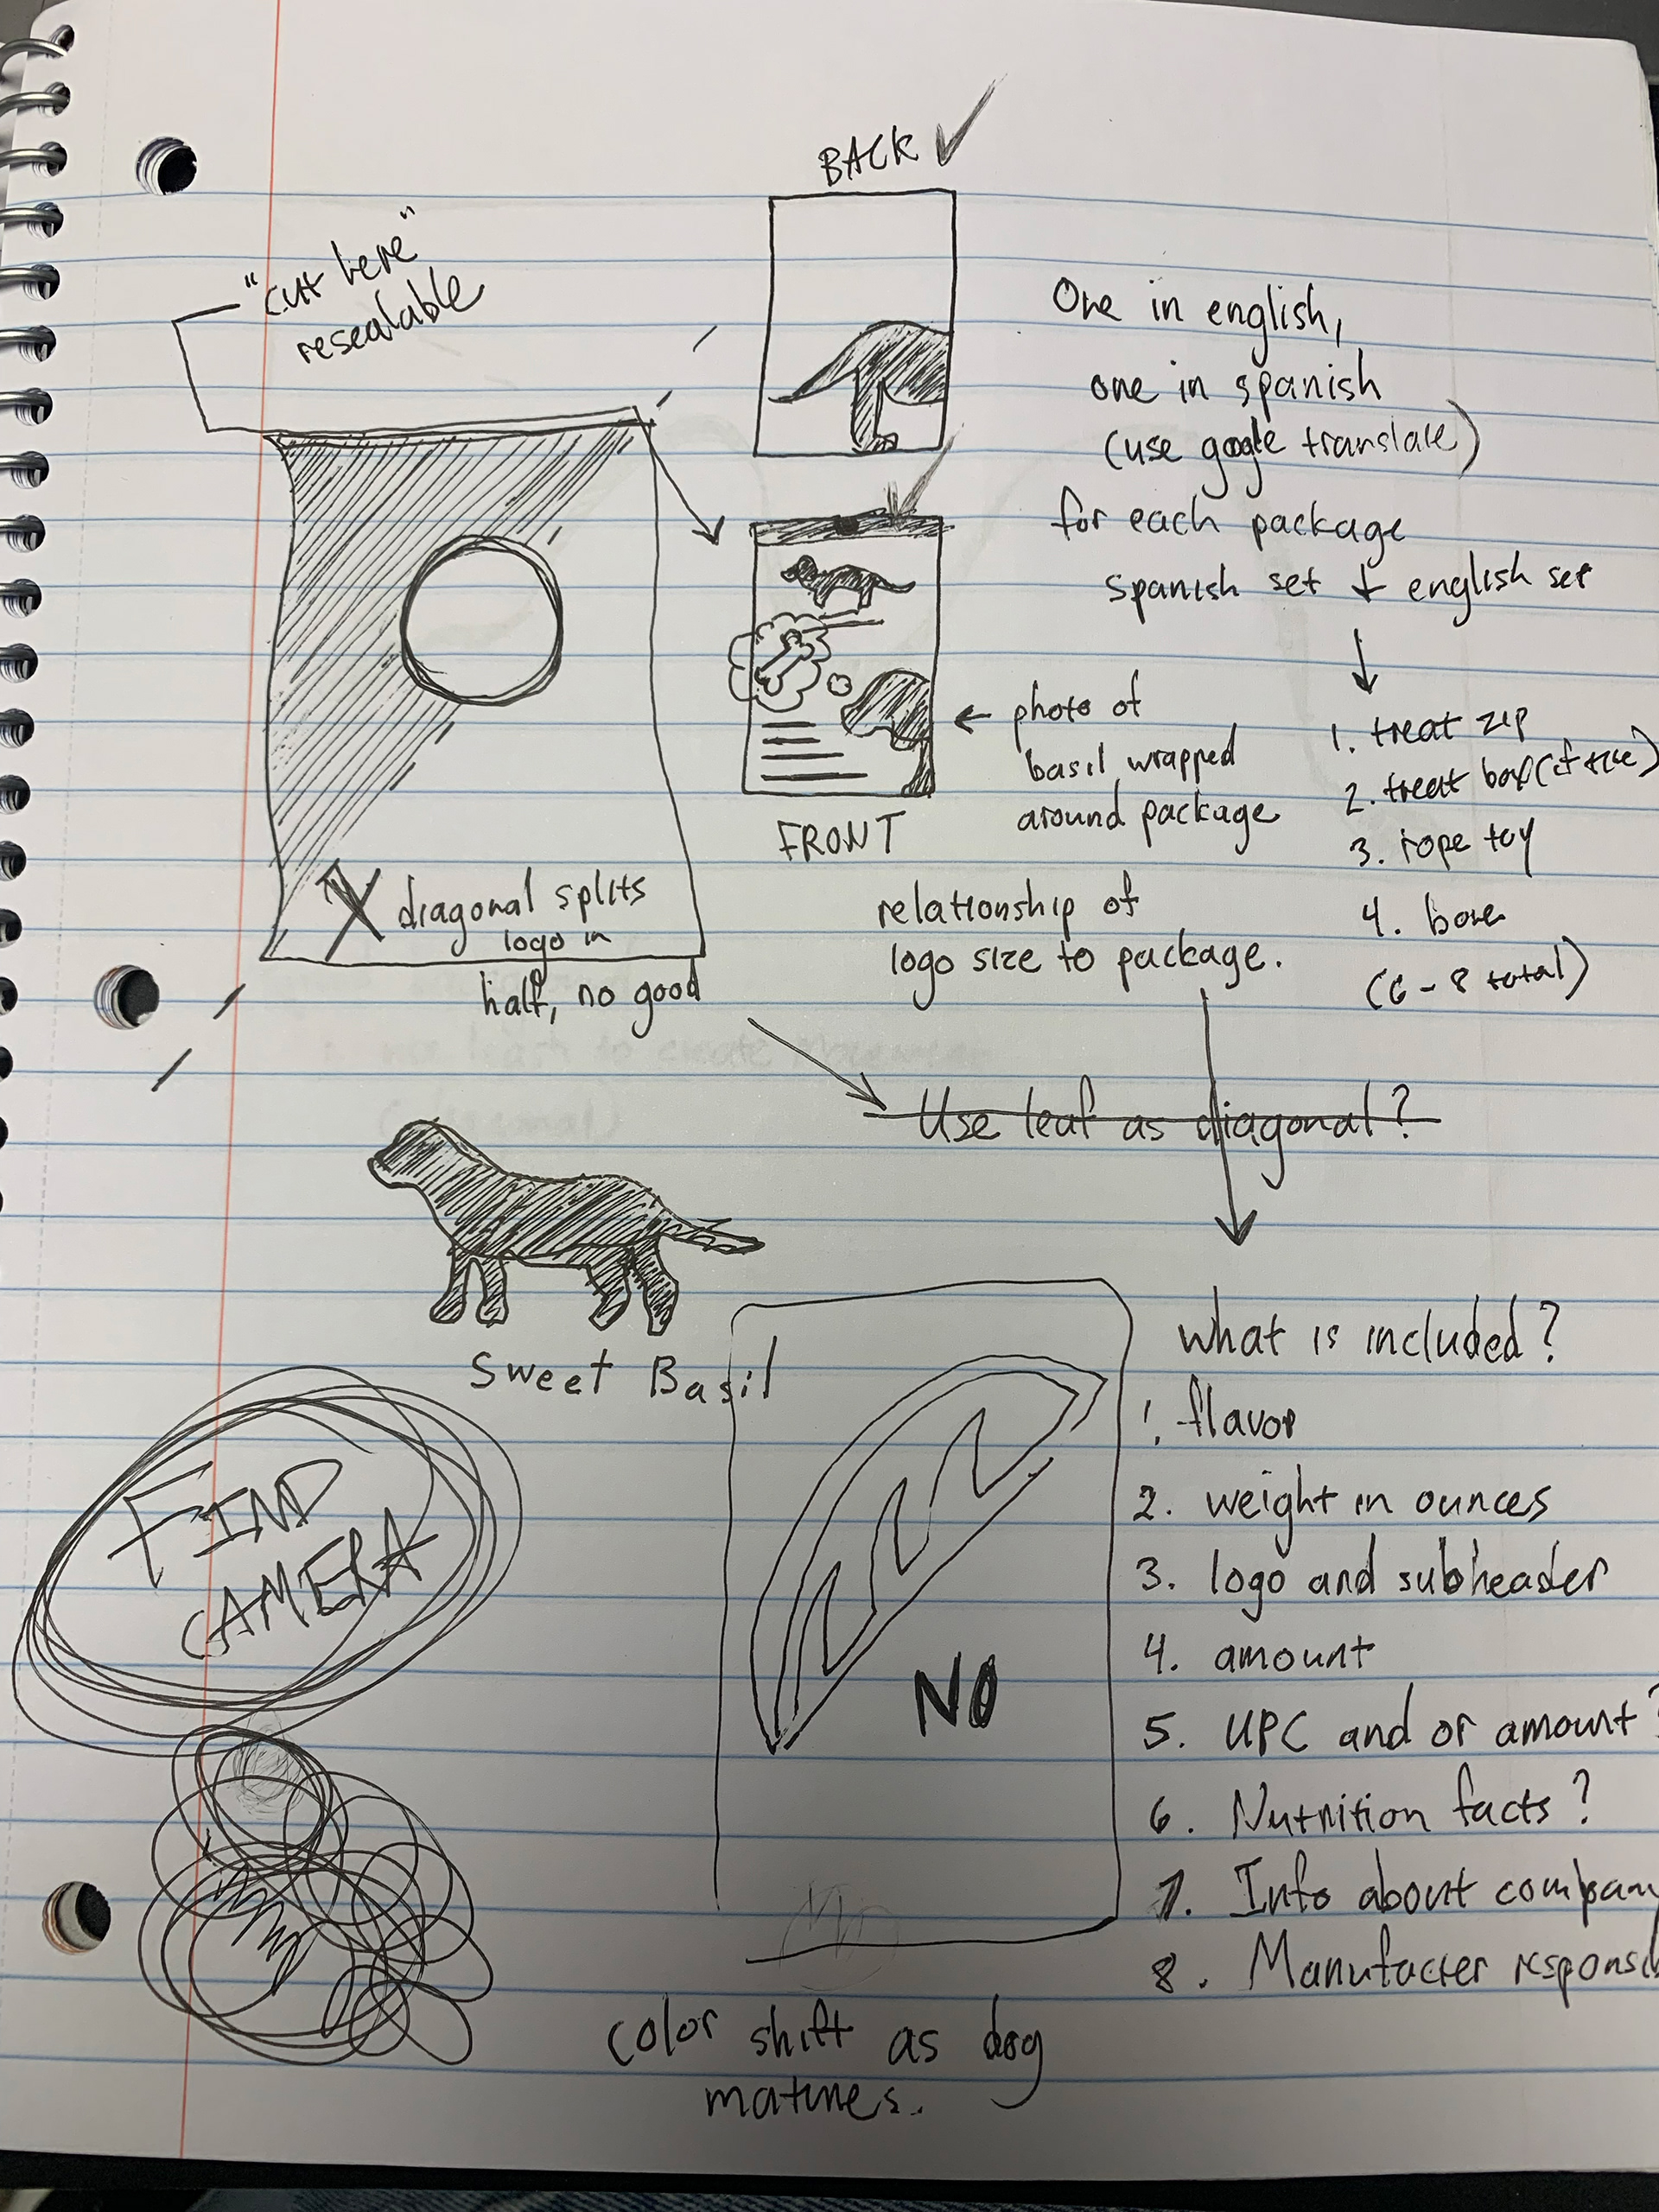 BACK
"cut here"
resealable
One in english,
one in spanish
(use google translate)
for each package
spanish set + english set
1. treat zip
2. treat box
3. rope toy
4. bone
(6-8 total)
← photo of
basil wrapped
around package
FRONT
X diagonal splits
logo in
half, no good
relationship of
logo size to package.
Use leaf as diagonal?
Sweet Basil
FIND
CAMERA
NO
what is included?
1. flavor
2. weight in ounces
3. logo and subheader
4. amount
5. UPC and or amount?
6. Nutrition facts?
7. Info about company
8. Manufacter
color shift as dog
matures.